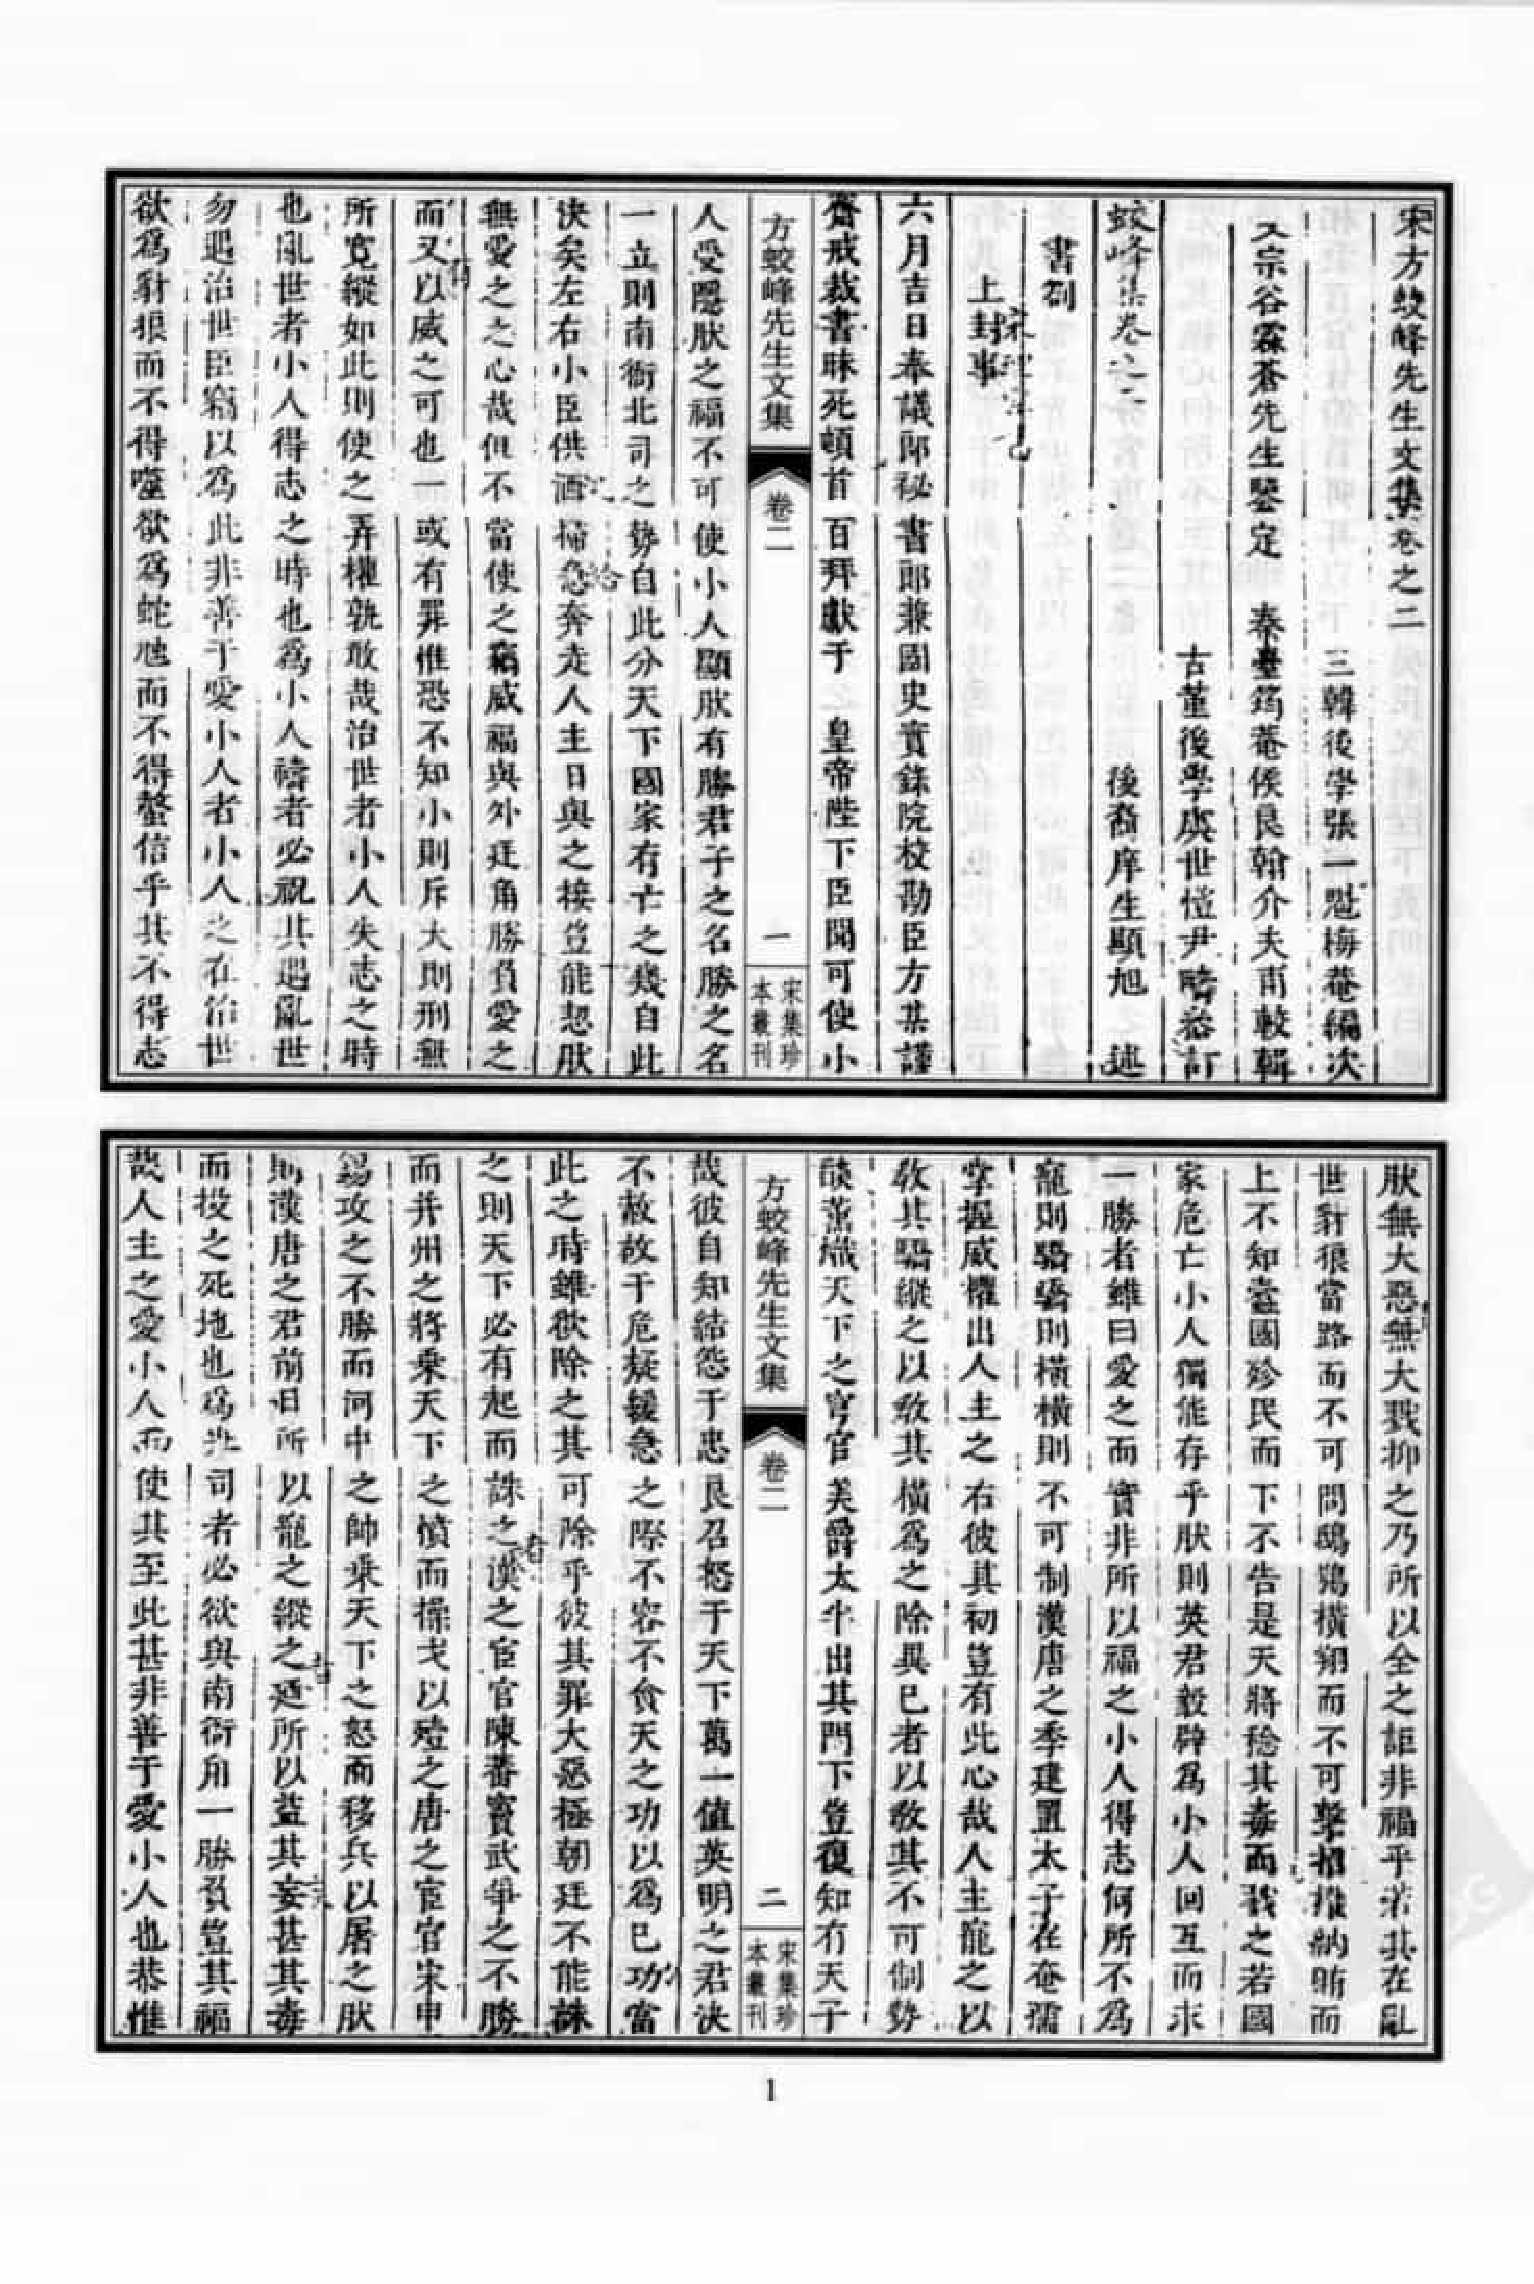 宋方蛟峰先生文集卷之二
三韓後學張一魁梅菴編次
宗谷霖蒼先生鑒定　秦臺筠菴侯良翰介夫甫較輯
古菫後學虞世愷尹疇訂
蛟峰集卷之二　後裔庠生顯旭　述
書劄
上封事
六月吉日奉議郎秘書郎兼國史實錄院校勘臣方某謹
齋戒裁書昧死頓首百拜獻于　皇帝陛下臣聞可使小
方蛟峰先生文集
卷二
一
宋集珍
本叢刊
人受隱肰之福不可使小人顯肰有勝君子之名勝之名
一立則南衙北司之勢自此分天下國家有亡之幾自此
決矣左右小臣供洒掃急奔走人主日與之接豈能恝肰
無愛之之心哉但不當使之竊威福與外廷角勝負愛之
而又以威之可也一或有罪惟恐不知小則斥大則刑無
所寬縱如此則使之弄權孰敢哉治世者小人失志之時
也亂世者小人得志之時也為小人禱者必祝其遇亂世
勿遇治世臣竊以為此非善于愛小人者小人之在治世
欲為豺狼而不得噬欲為蛇虺而不得螫信乎其不得志
肰無大惡無大戮抑之乃所以全之詎非福乎若其在亂
世豺狠當路而不可問鴟鴞橫翔而不可擊招權納賄而
上不知蠧國殄民而下不告是天將稔其毒而戕之若國
家危亡小人獨能存乎肰則英君毅辟為小人回互而求
一勝者雖曰愛之而實非所以福之小人得志何所不為
寵則驕驕則橫橫則不可制漢唐之季建置太子在奄孺
掌握威權出人主之右彼其初豈有此心哉人主寵之以
敎其驕縱之以敎其橫為之除異已者以敎其不可制勢
燄薰熾天下之官官美爵太半出其門下豈復知有天子
方蛟峰先生文集
卷二
二
宋集珍
本叢刊
哉彼自知結怨于忠良召怒于天下萬一值英明之君決
不敢故于危疑緩急之際不容不貪天之功以為已功當
此之時雖欲除之其可除乎彼其罪大惡極朝廷不能誅
之則天下必有起而誅之漢之宦官陳蕃竇武爭之不勝
而并州之將乘天下之憤而操戈以殪之唐之宦官宋申
錫攻之不勝而河中之帥乘天下之怒而移兵以屠之肰
則漢唐之君前日所以寵之縱之廼所以益其妄甚其毒
而投之死地也為北司者必欲與南衙角一勝負豈其福
哉人主之愛小人而使其至此甚非善于愛小人也恭惟
1